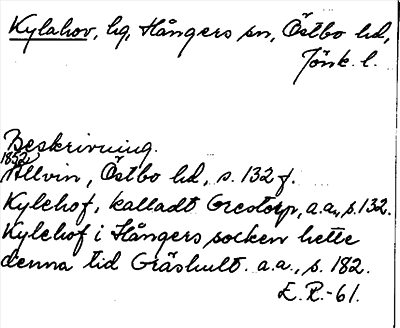 Kylahov, hg, Hångers sn, Östbo hd,
Jönk. l.
Beskrivning.
1852
Allvin, Östbo hd, s. 132 f.
Kylehof, kalladt Grestorp, a.a., s. 132.
Kylehof i Hångers socken hette
denna tid Gräshult. a.a., s. 182.
E. R.-61.